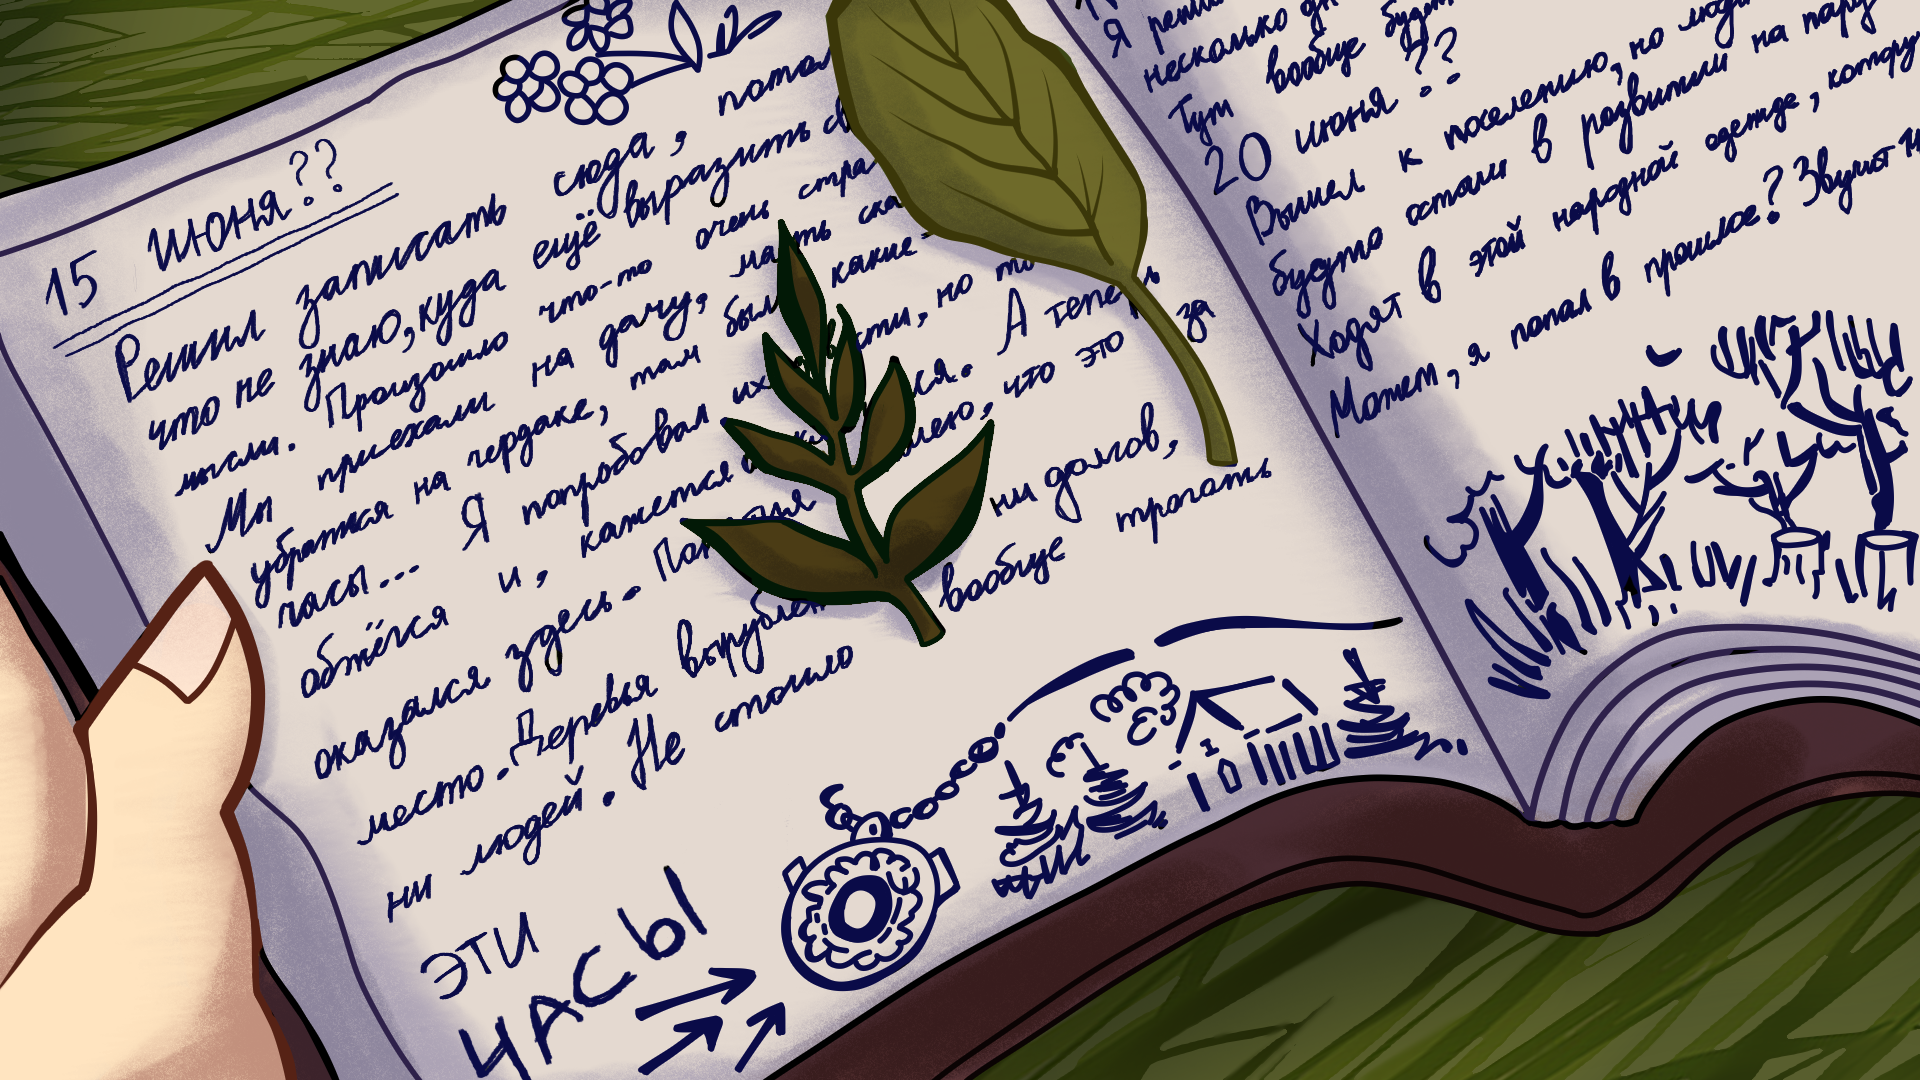 15 июня??
Решил записать сюда, потом
что не знаю, куда ещё выразить св
мысли. Произошло что-то очень стра
Мы приехали на дачу, ма ть ска
убраться на чердаке, там были какие-
часы... Я попробовал их сти, но то
обжёгся и, кажется ся. А теперь
оказался здесь. По ия мею, что это за
место. Деревья вырублен ни домов,
ни людей. Не стоило вообще трогать
ЭТИ
ЧАСЫ
Я реши
несколько дн
Тут вообще будт
20 июня ??
Вышел к поселению, но люди
будто отстали в развитии на пару
Ходят в этой народной одежде, котору
Может, я попал в прошлое? Звучит